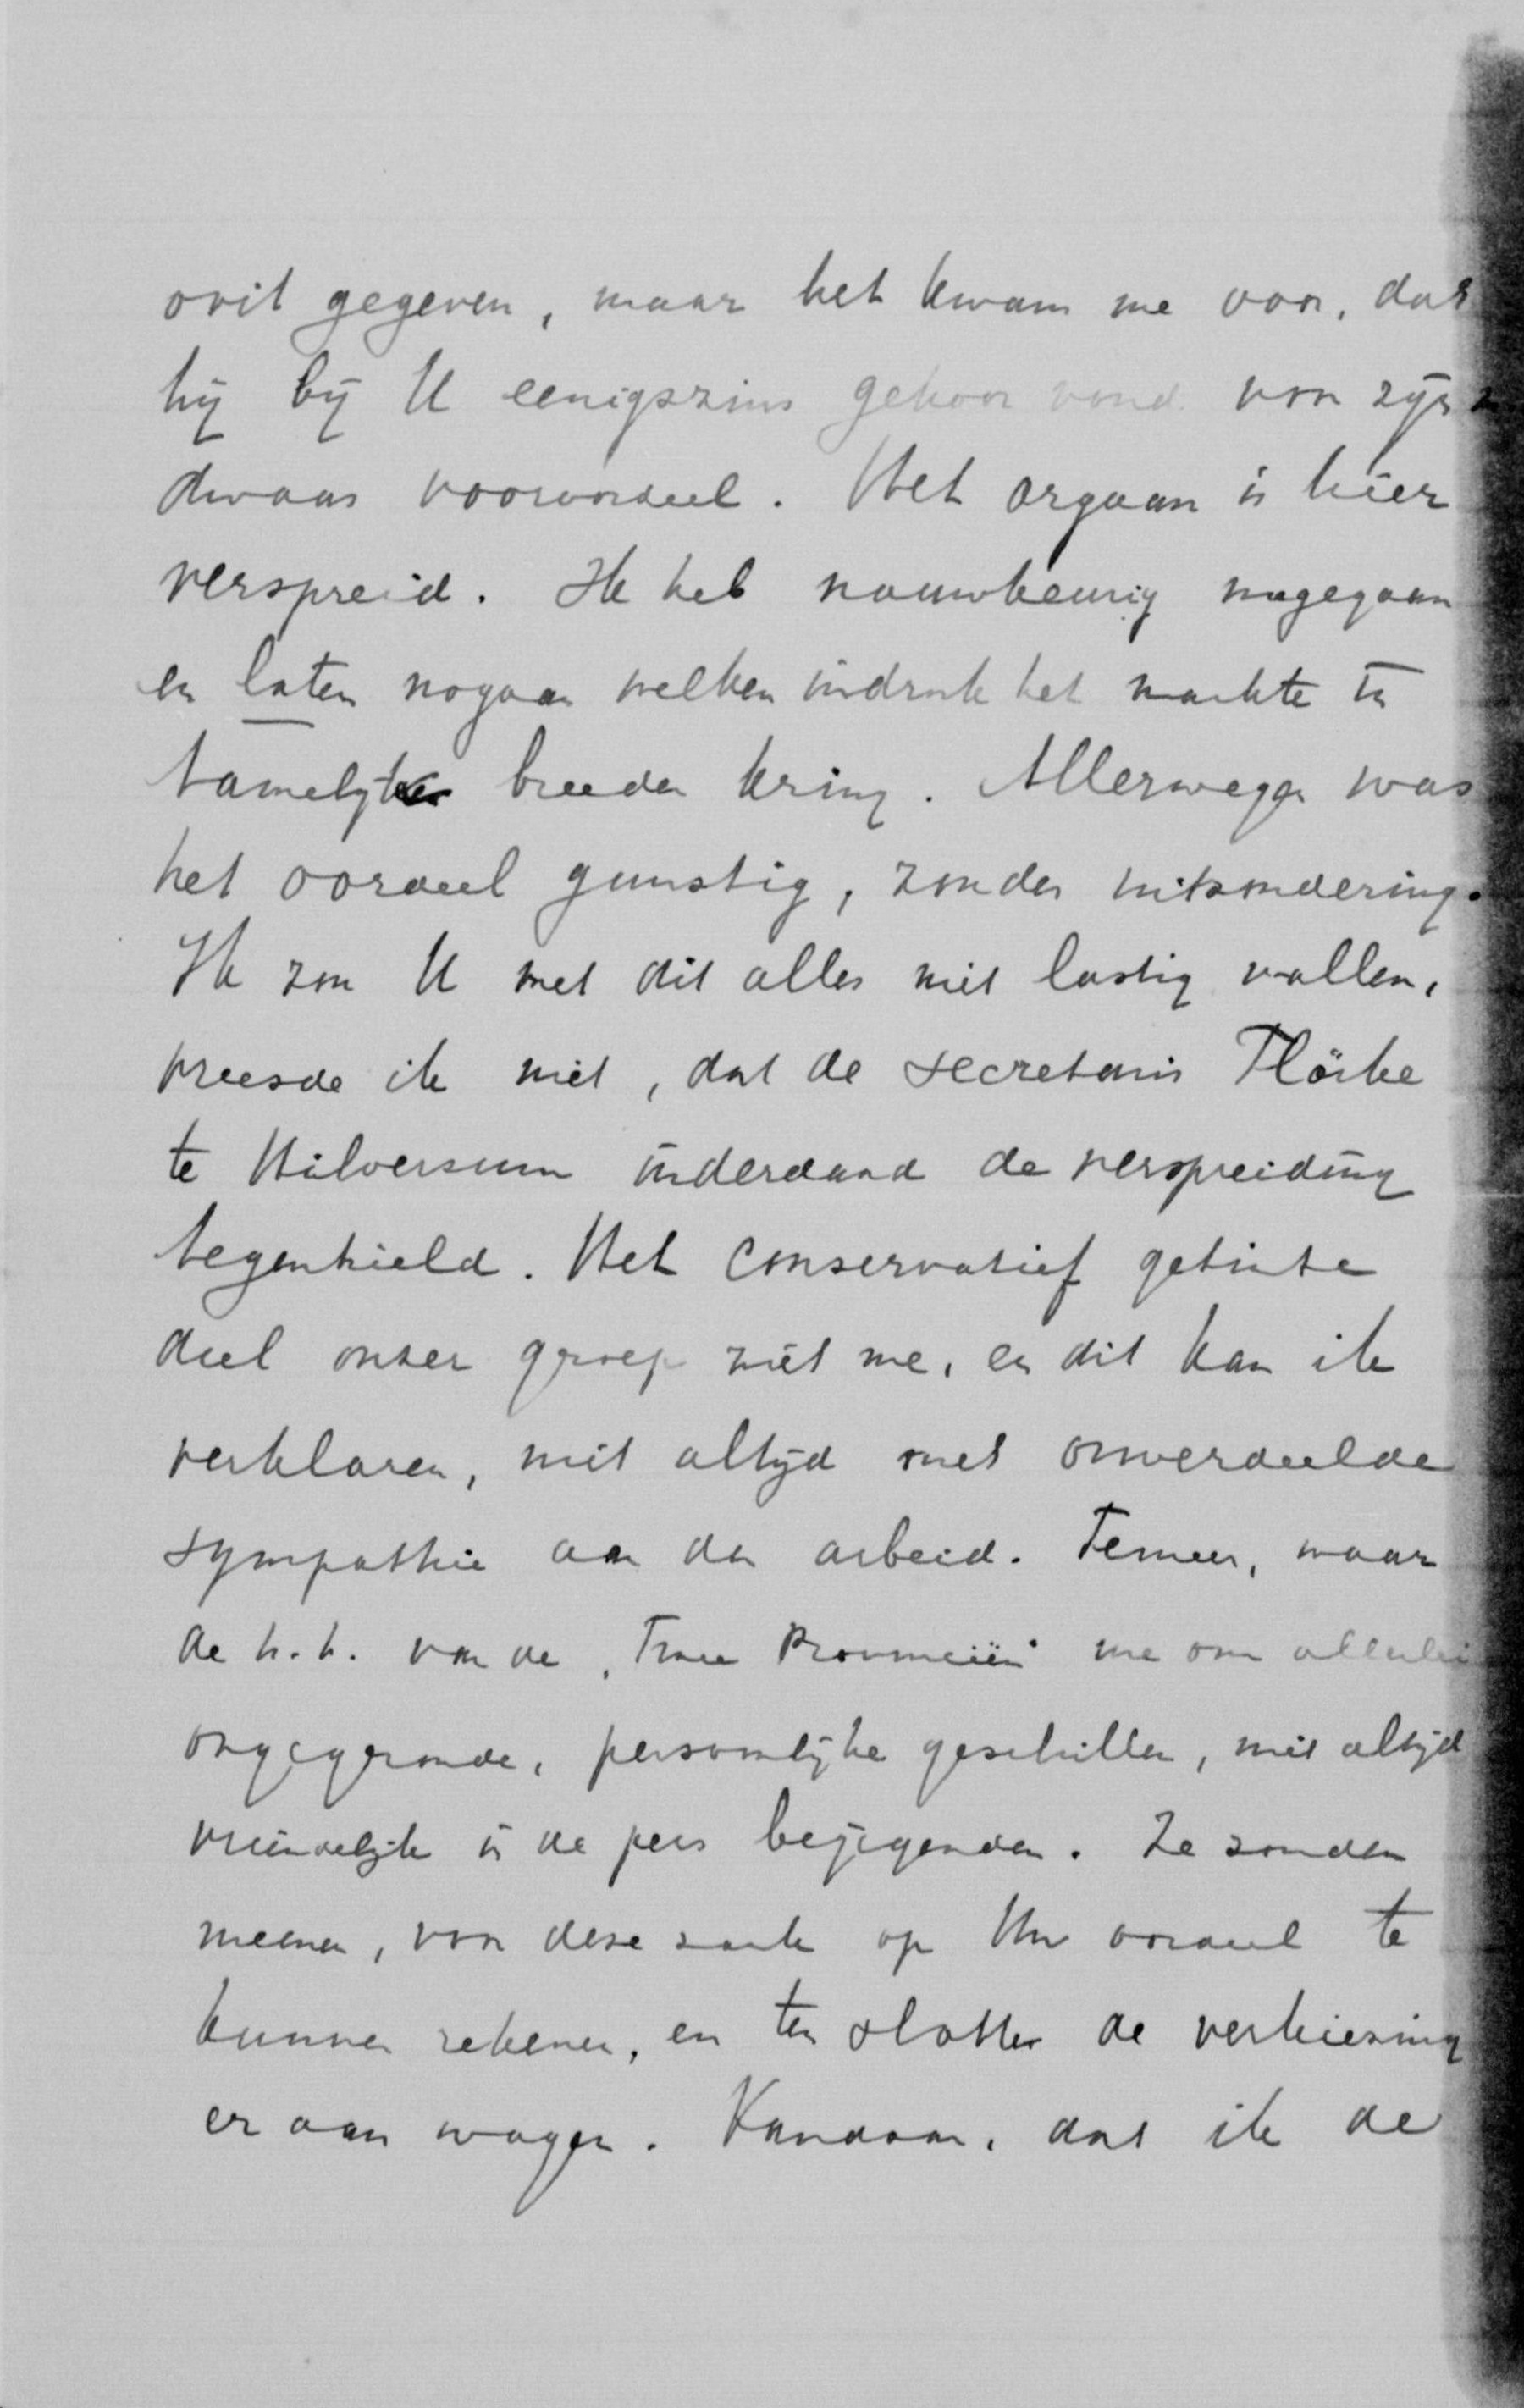 ooit gegeven, maar het kwam me voor, dat
hij bij U eenigszins gehoor vond voor zijn
dwaas vooroordeel. Het orgaan is hier
verspreid. Ik heb nauwkeurig nagegaan
en laten nagaan welken indruk het maakte in
tamelijk breeden kring. Allerwegen was
het oordeel gunstig, zonder uitzondering.
Ik zou U met dit alles niet lastig vallen,
vreesde ik niet, dat de secretaris Flörke
te Hilversum inderdaad de verspreiding
tegenhield. Het conservatief getinte
deel onzer groep ziet me, en dit kan ik
verklaren, niet altijd met onverdeelde
sympathie aan den arbeid. Temeer, waar
de h.h. van de „Twee Provinciën" me om allerlei
ongegronde, persoonlijke geschillen, niet altijd
vriendelijk in de pers bejegenden. Ze zouden
meenen, voor deze zaak op Uw oordeel te
kunnen rekenen, en ten slotte de verkiezing
er aan wagen. Vandaar, dat ik de